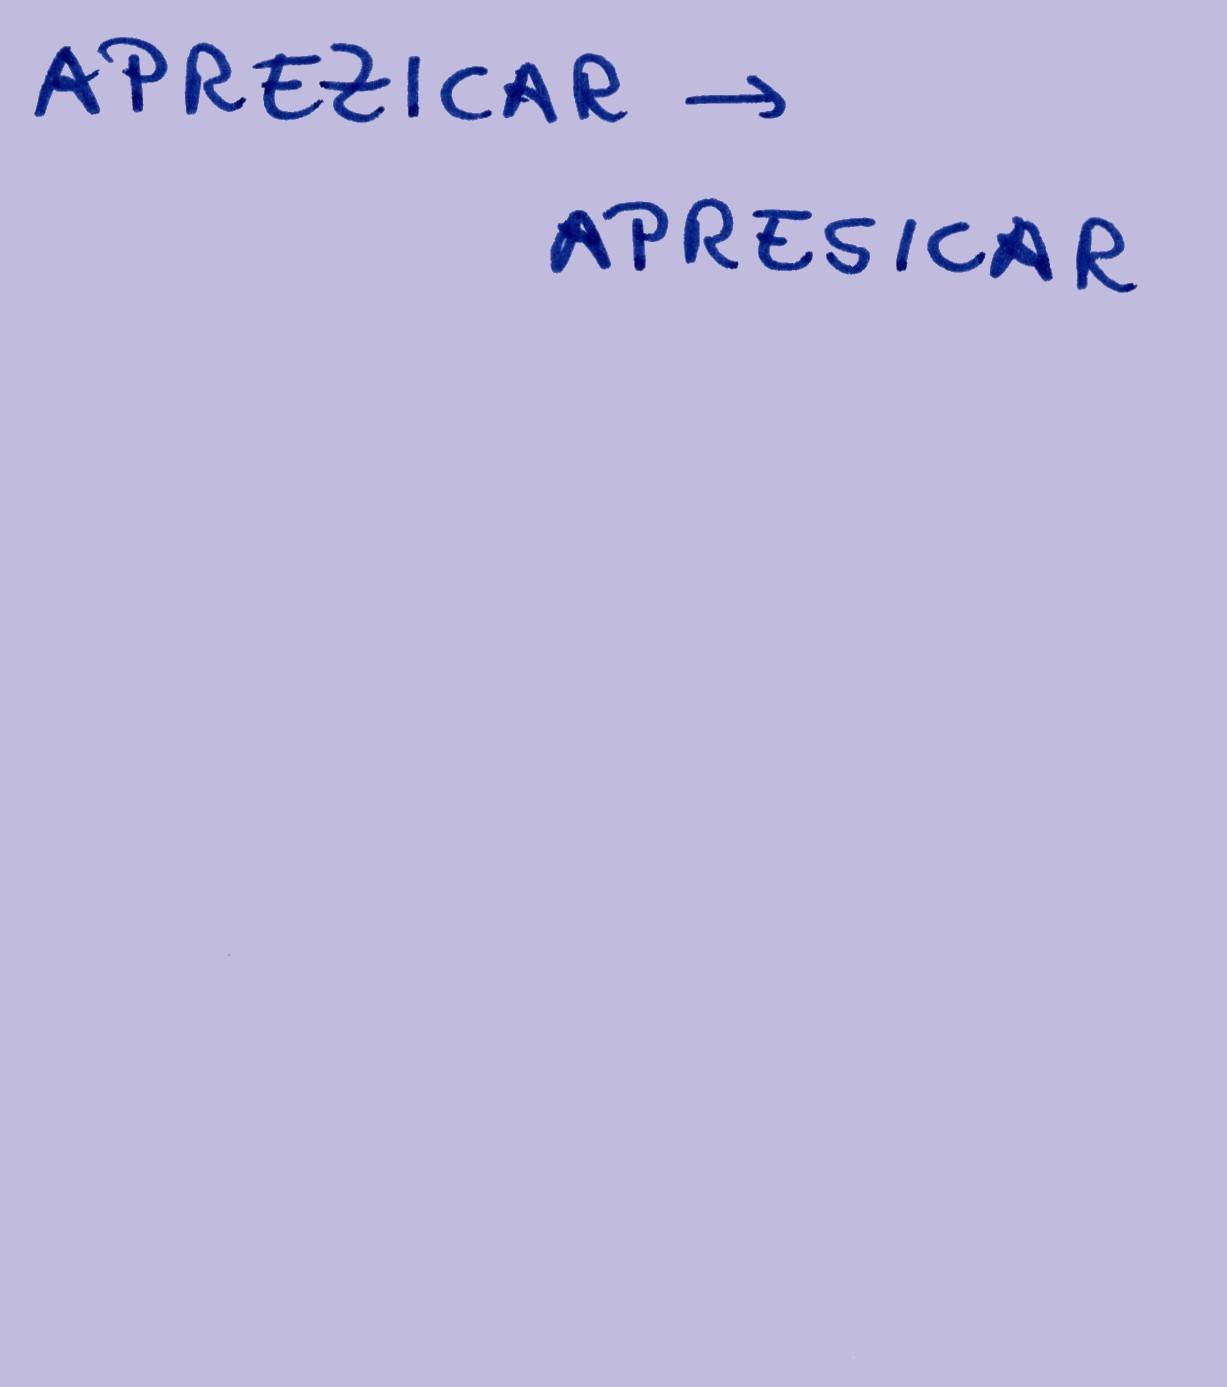 APREZICAR →
APRESICAR